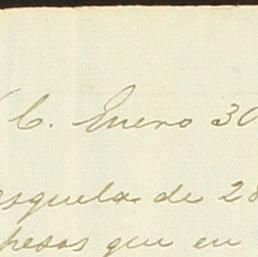 C. Enero 30
esquela de 28
pesos que en